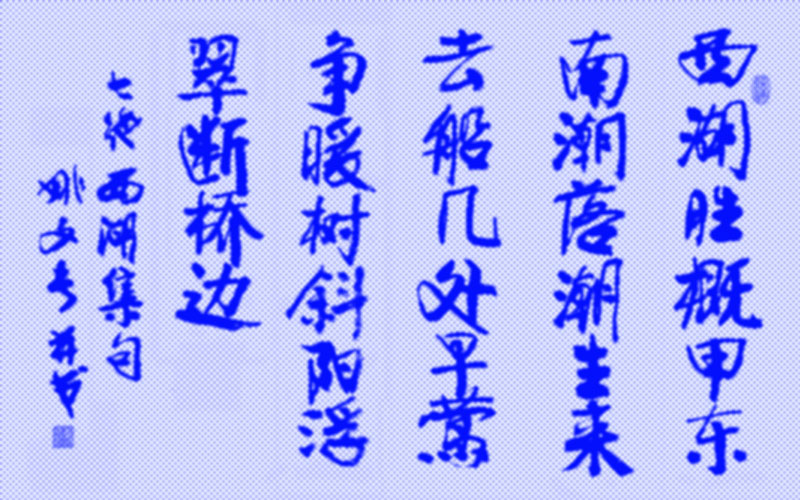 西湖胜概甲东
南潮落潮生来
去船几处早莺
争暖树斜阳浮
翠断桥边
七绝西湖集句
文并书